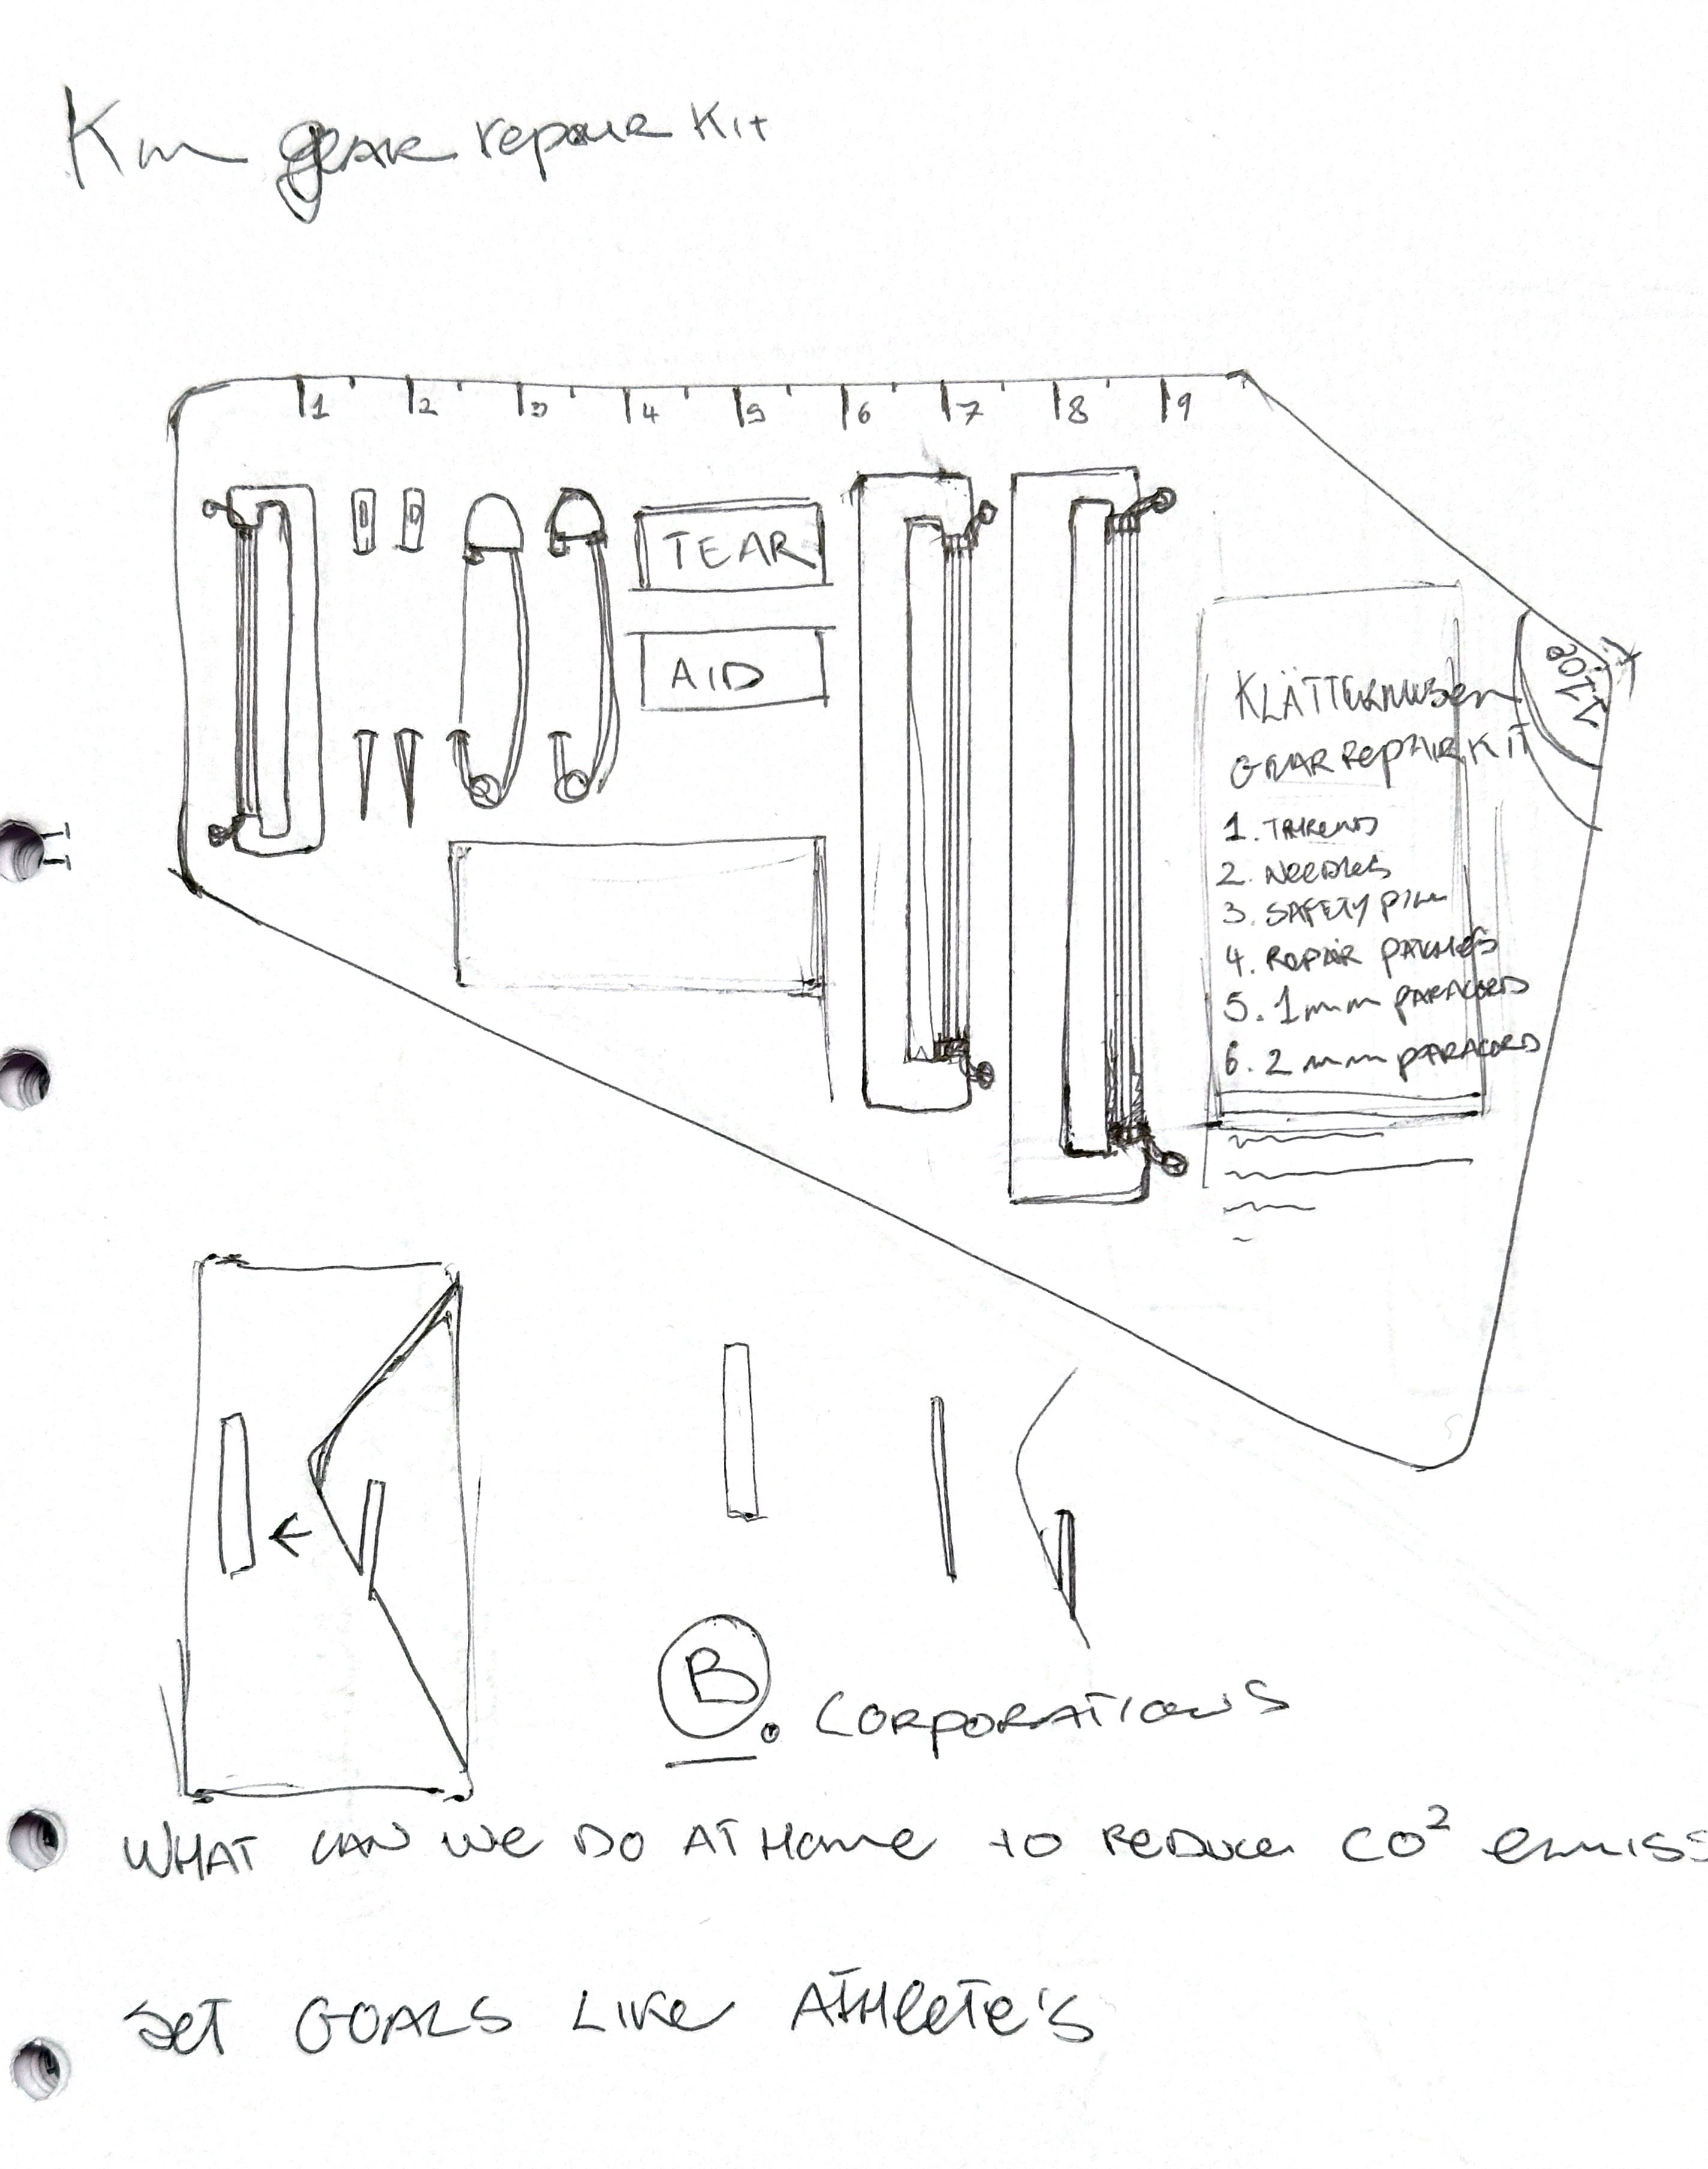 Km gear repair kit
1 2 3 4 5 6 7 8 9
TEAR
AID
KLÄTTERMUSEN
GEAR REPAIR KIT
1. THREADS
2. NEEDLES
3. SAFETY PIN
4. REPAIR PATCHES
5. 1mm PARACORDS
6. 2mm PARACORD
B. CORPORATIONS
WHAT CAN WE DO AT HOME TO REDUCE CO² EMISS
SET GOALS LIKE ATHLETE'S